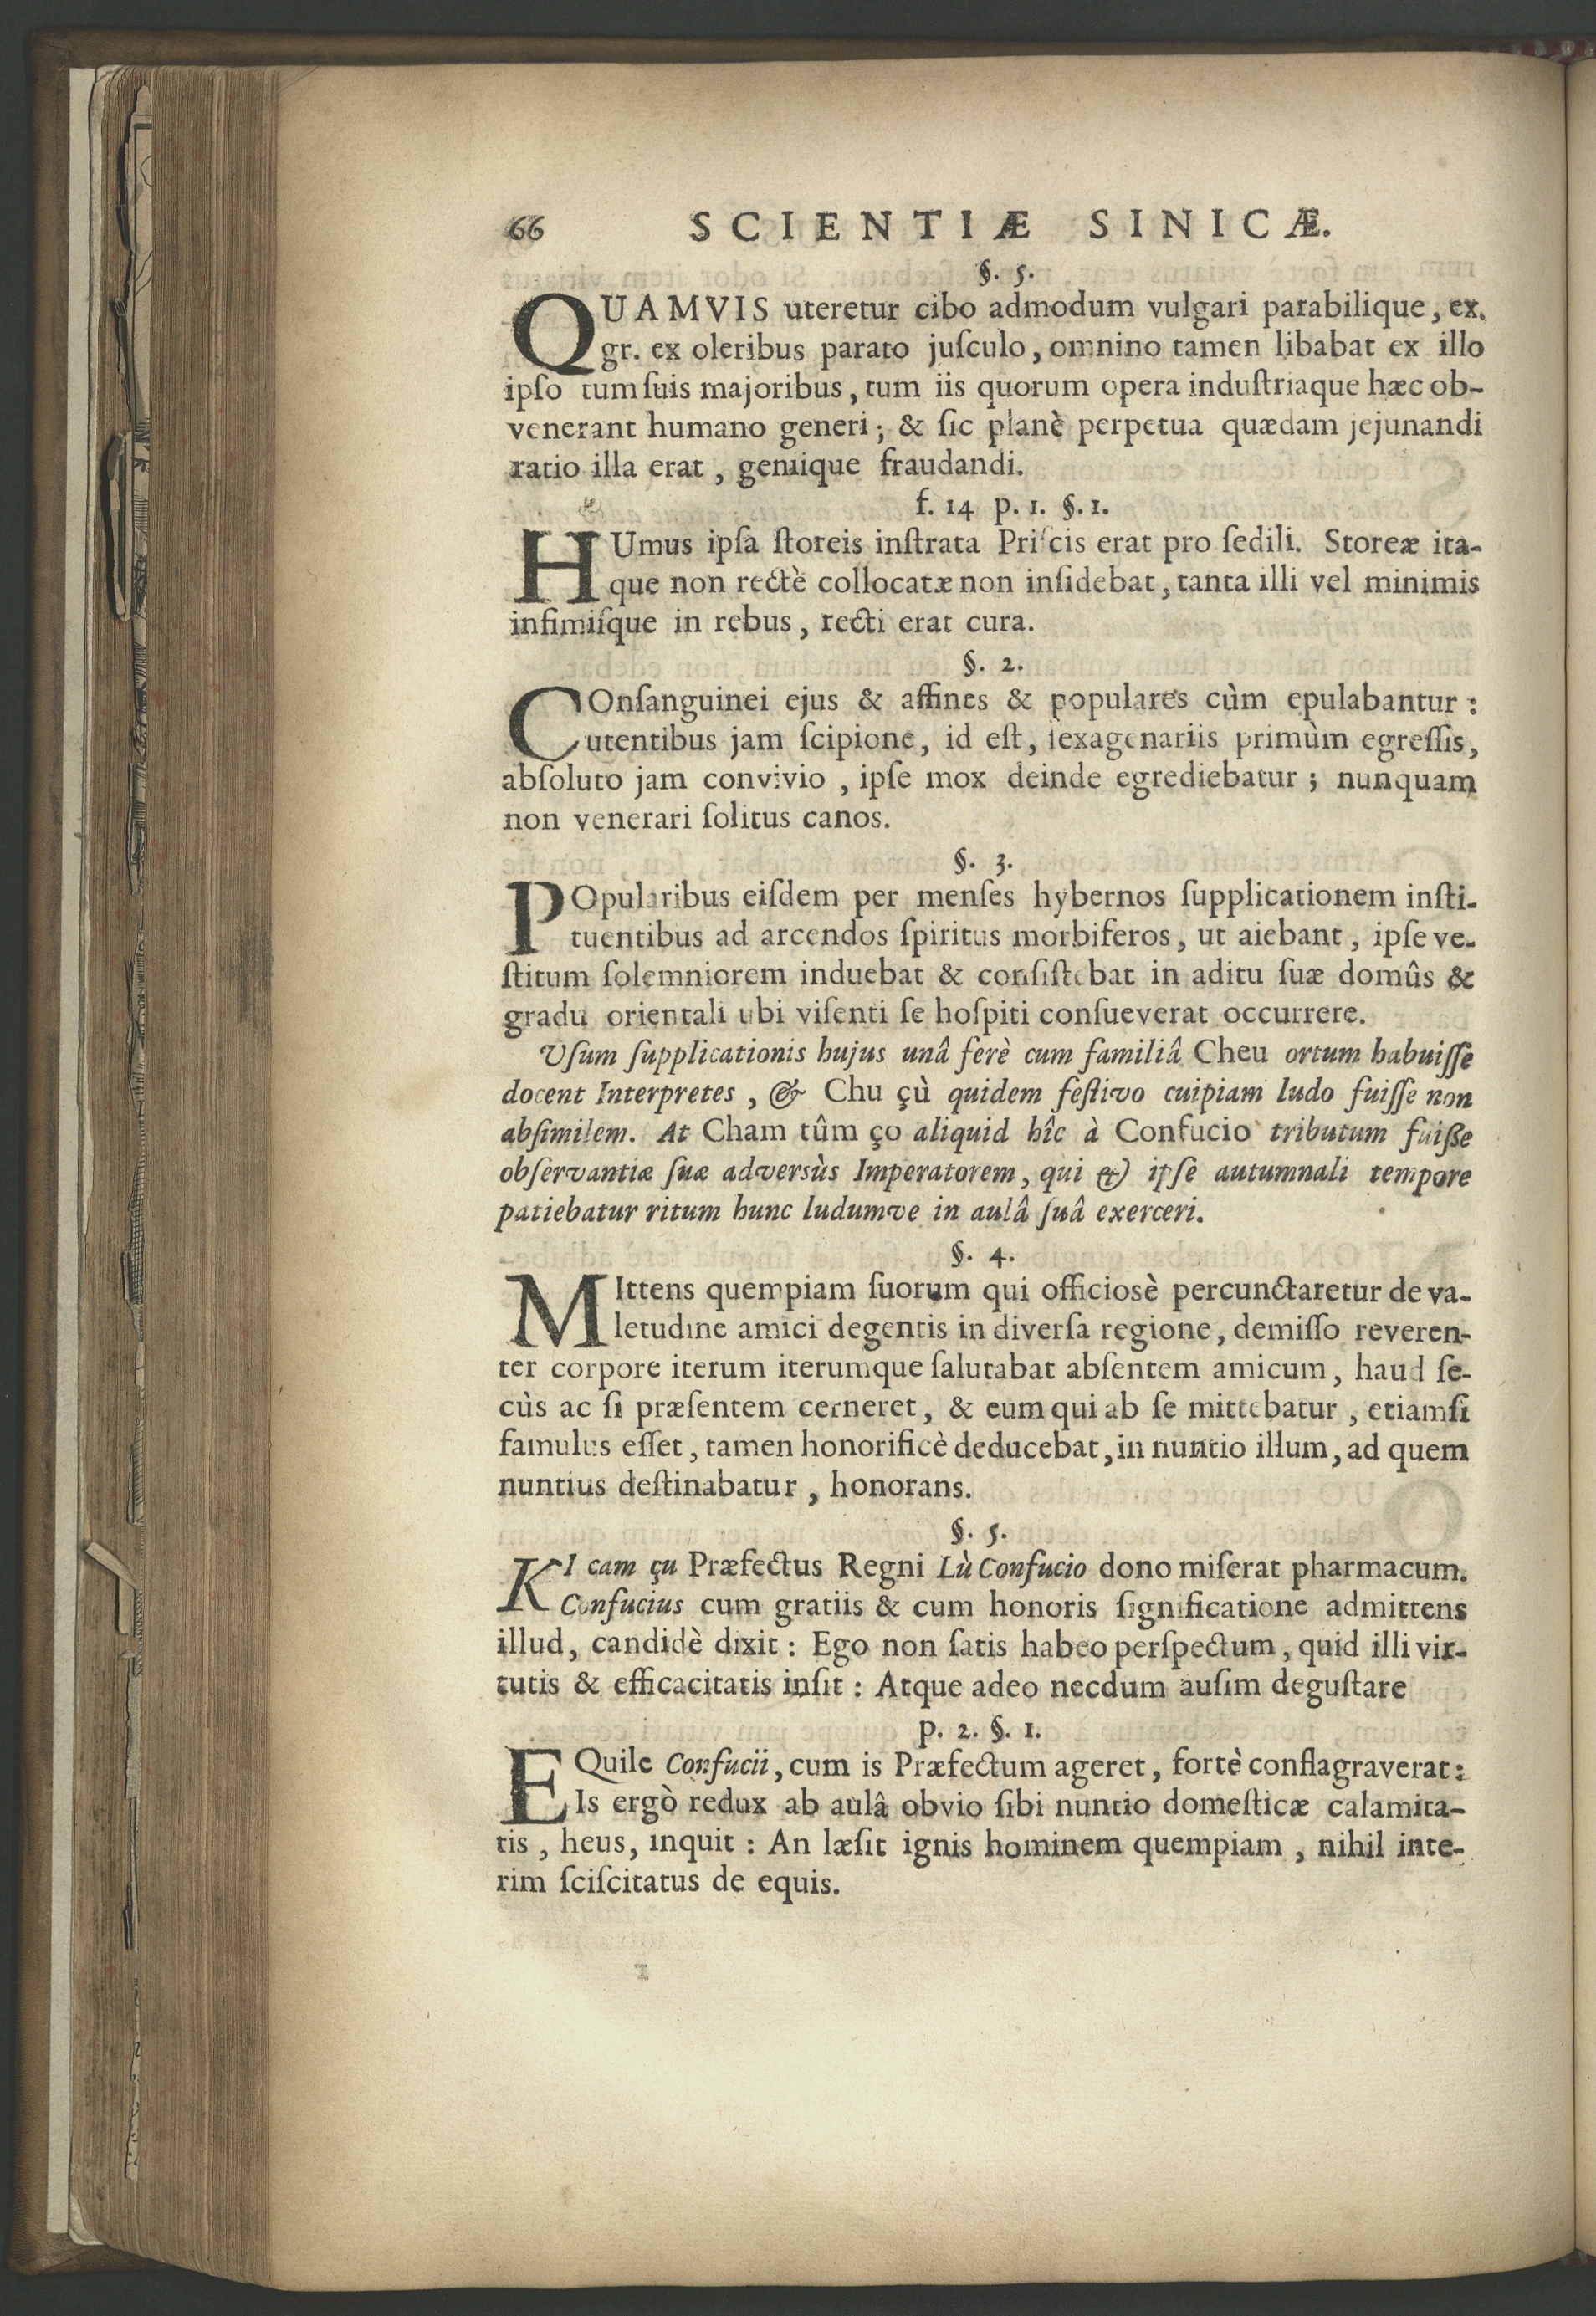 66 SCIENTIÆ SINICÆ.
§. 5.
QUAMVIS uteretur cibo admodum vulgari parabilique, ex.
gr. ex oleribus parato juſculo, omnino tamen libabat ex illo
ipſo tum ſuis majoribus, tum iis quorum opera induſtriaque hæc ob-
venerant humano generi; & ſic planè perpetua quædam jejunandi
ratio illa erat, geniique fraudandi.
f. 14 p. 1. §. 1.
HUmus ipſa ſtoreis inſtrata Priſcis erat pro ſedili. Storeæ ita-
que non rectè collocatæ non inſidebat, tanta illi vel minimis
infimiſque in rebus, recti erat cura.
§. 2.
COnſanguinei ejus & affines & populares cùm epulabantur:
utentibus jam ſcipione, id eſt, ſexagenariis primùm egreſſis,
abſoluto jam convivio, ipſe mox deinde egrediebatur; nunquam
non venerari ſolitus canos.
§. 3.
POpularibus eiſdem per menſes hybernos ſupplicationem inſti-
tuentibus ad arcendos ſpiritus morbiferos, ut aiebant, ipſe ve-
ſtitum ſolemniorem induebat & conſiſtebat in aditu ſuæ domûs &
gradu orientali ubi viſenti ſe hoſpiti conſueverat occurrere.
Vſum ſupplicationis hujus unâ ferè cum familiâ Cheu ortum habuiſſe
docent Interpretes, & Chu çù quidem feſtivo cuipiam ludo fuiſſe non
abſimilem. At Cham tûm ço aliquid hîc à Confucio tributum fuiße
obſervantiæ ſuæ adversùs Imperatorem, qui & ipſe autumnali tempore
patiebatur ritum hunc ludumve in aulâ ſuâ exerceri.
§. 4.
MIttens quempiam ſuorum qui officiosè percunctaretur de va-
letudine amici degentis in diverſa regione, demiſſo reveren-
ter corpore iterum iterumque ſalutabat abſentem amicum, haud ſe-
cùs ac ſi præſentem cerneret, & eum qui ab ſe mittebatur, etiamſi
famulus eſſet, tamen honorificè deducebat, in nuntio illum, ad quem
nuntius deſtinabatur, honorans.
§. 5.
KI cam çu Præfectus Regni Lù Confucio dono miſerat pharmacum.
Confucius cum gratiis & cum honoris ſignificatione admittens
illud, candidè dixit: Ego non ſatis habeo perſpectum, quid illi vir-
tutis & efficacitatis inſit: Atque adeo necdum auſim deguſtare
p. 2. §. 1.
EQuile Confucii, cum is Præfectum ageret, fortè conflagraverat:
Is ergò redux ab aulâ obvio ſibi nuntio domeſticæ calamita-
tis, heus, inquit: An læſit ignis hominem quempiam, nihil inte-
rim ſciſcitatus de equis.